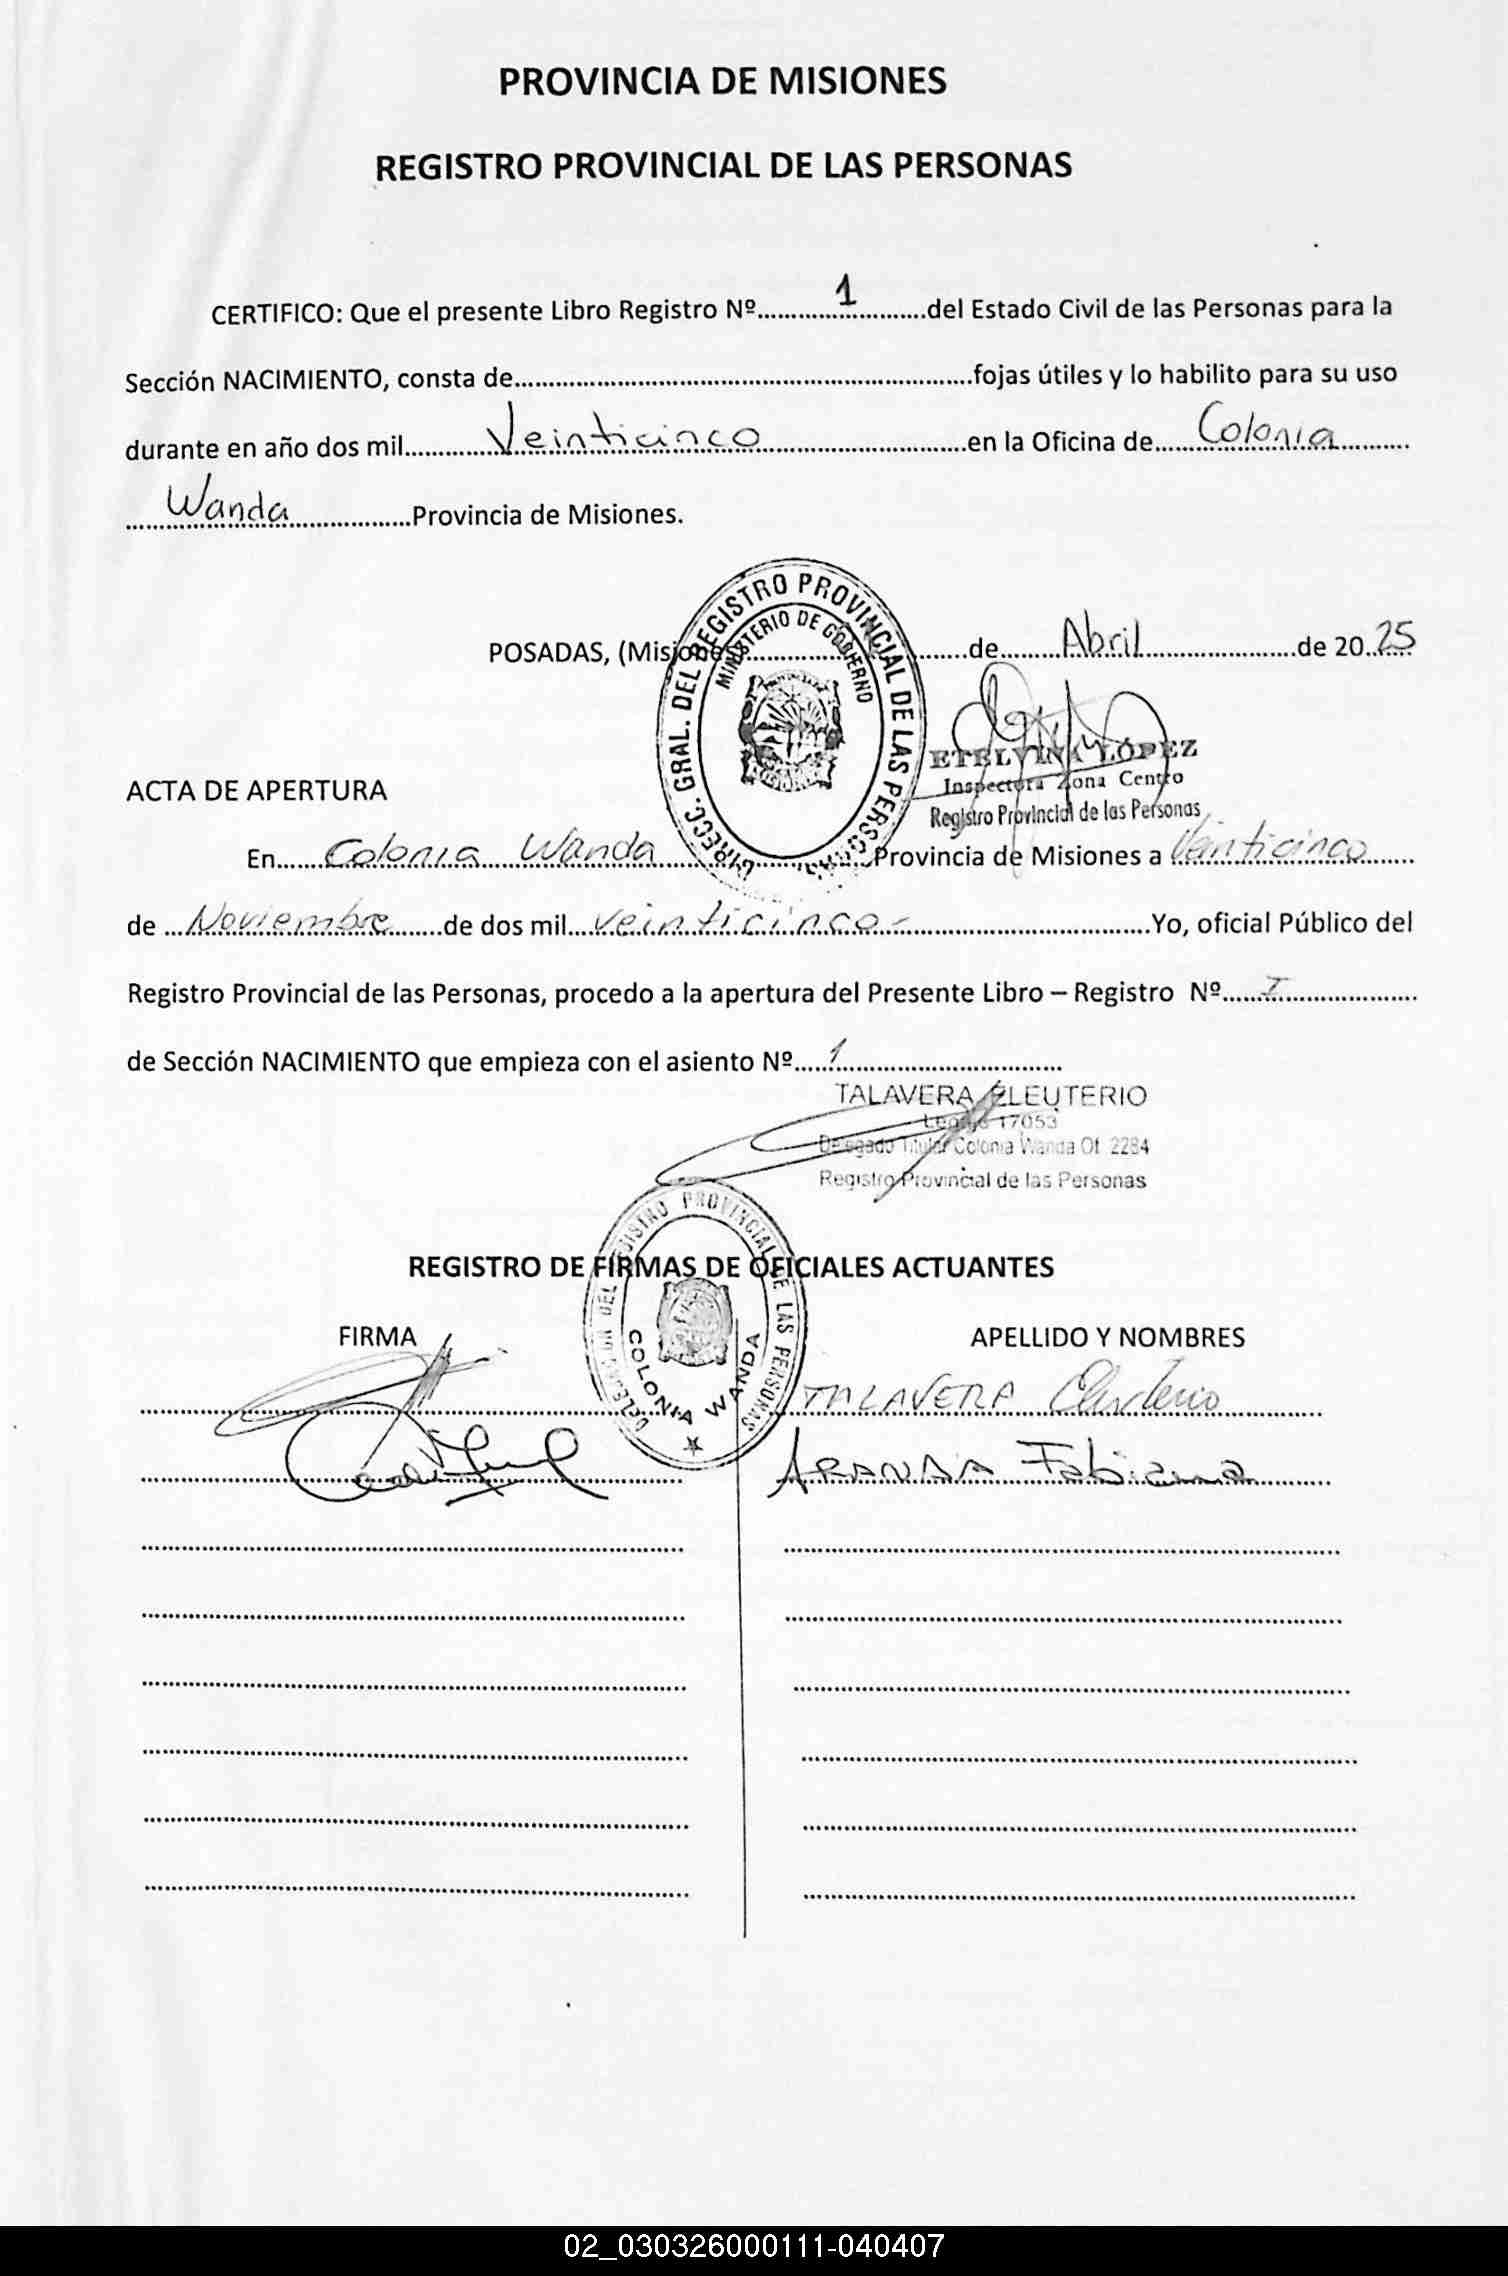 PROVINCIA DE MISIONES
REGISTRO PROVINCIAL DE LAS PERSONAS
CERTIFICO: Que el presente Libro Registro Nº 1 del Estado Civil de las Personas para la
Sección NACIMIENTO, consta de fojas útiles y lo habilito para su uso
durante en año dos mil Veinticinco en la Oficina de Colonia
Wanda Provincia de Misiones.
DIRECC. GRAL. DEL REGISTRO PROVINCIAL DE LAS PERSONAS
MINISTERIO DE GOBIERNO
POSADAS, (Misiones) de Abril de 2025
ETELVINA LÓPEZ
Inspectora Zona Centro
Registro Provincial de las Personas
ACTA DE APERTURA
En Colonia Wanda Provincia de Misiones a Veinticinco
de Noviembre de dos mil veinticinco- Yo, oficial Público del
Registro Provincial de las Personas, procedo a la apertura del Presente Libro – Registro Nº I
de Sección NACIMIENTO que empieza con el asiento Nº 1
TALAVERA ELEUTERIO
Legajo 17053
Delegado Titular Colonia Wanda Of. 2284
Registro Provincial de las Personas
DELEGACION DEL REGISTRO PROVINCIAL DE LAS PERSONAS
COLONIA WANDA
REGISTRO DE FIRMAS DE OFICIALES ACTUANTES
FIRMA APELLIDO Y NOMBRES
TALAVERA Eleuterio
ARANDA Fabiana
02_030326000111-040407